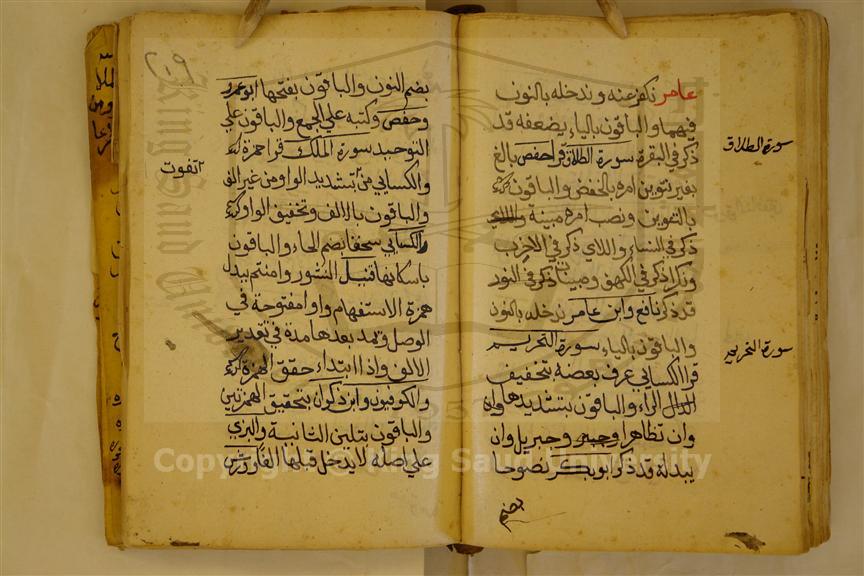 عامر نكفر عنه وندخله بالنون
فيهما والباقون بالياء يضعفه قد
ذكر في البقرة سورة الطلاق قرا حفص بالغ
بغير تنوين امره بالخفض والباقون
بالتنوين ونصب امره مبينة واللاي
ذكر في النساء واللاي ذكر في الاحزب
ونكرا ذكر في الكهف ومبينات ذكر في النور
قد ذكر نافع وابن عامر ندخله بالنون
والباقون بالياء سورة التحريم
قرا الكسائي عرف بعضه بتخفيف
الراء والباقون بتشديدها وان
وان تظاهرا وجبريل وان
يبدله قد ذكر ابو بكر نصوحا
بضم
سورة الطلاق
سورة التحريم
٢٠٩
بضم النون والباقون بفتحها ابو عمرو
وحفص وكتبه علي الجمع والباقون علي
التوحيد سورة الملك قرا حمزة
والكسائي من تفوت بتشديد الواو من غير الف
والباقون بالالف وتخفيف الواو
والكسائي سحقا بضم الحاء والباقون
باسكانها قنبل النشور وامنتم يبدل
همزة الاستفهام واوا مفتوحة في
الوصل ويمد بعدها مدة في تقدير
الالف واذا ابتداء حقق الهمزة
والكوفيون وابن ذكوان بتحقيق الهمزتين
والباقون بتلين الثانية والبزي
علي اصله لا يدخل قبلها الفا وورش
تفوت
Copyright © King Saud University